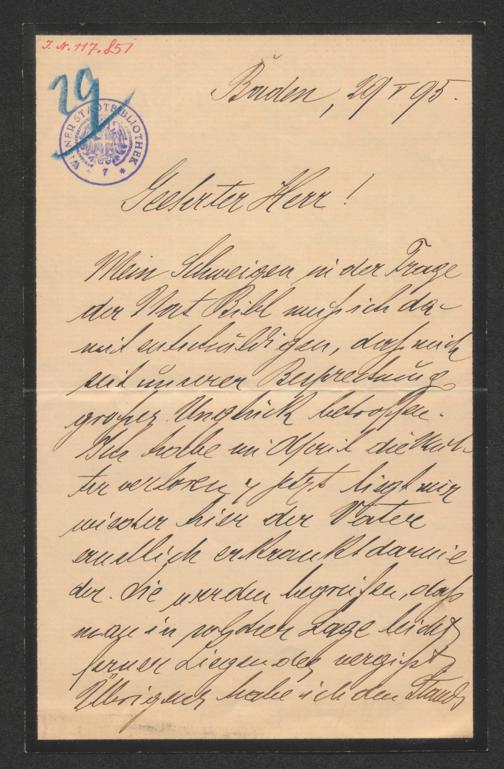 J. N. 117.851
29
WIENER STADTBIBLIOTHEK
* 7 *
Baden, 29 V 95.
Geehrter Herr!
Mein Schweigen in der Frage
der Nat Bibl muß ich da-
mit entschuldigen, daß mich
seit unserer Besprechung
großes Unglück betroffen.
Ich habe im April die Mut-
ter verloren u jetzt liegt mir
wieder hier der Vater
ernstlich erkrankt darnie
der. Sie werden begreifen, daß
man in solcher Lage leicht
ferner Liegendes vergißt.
Übrigens habe ich den Stand